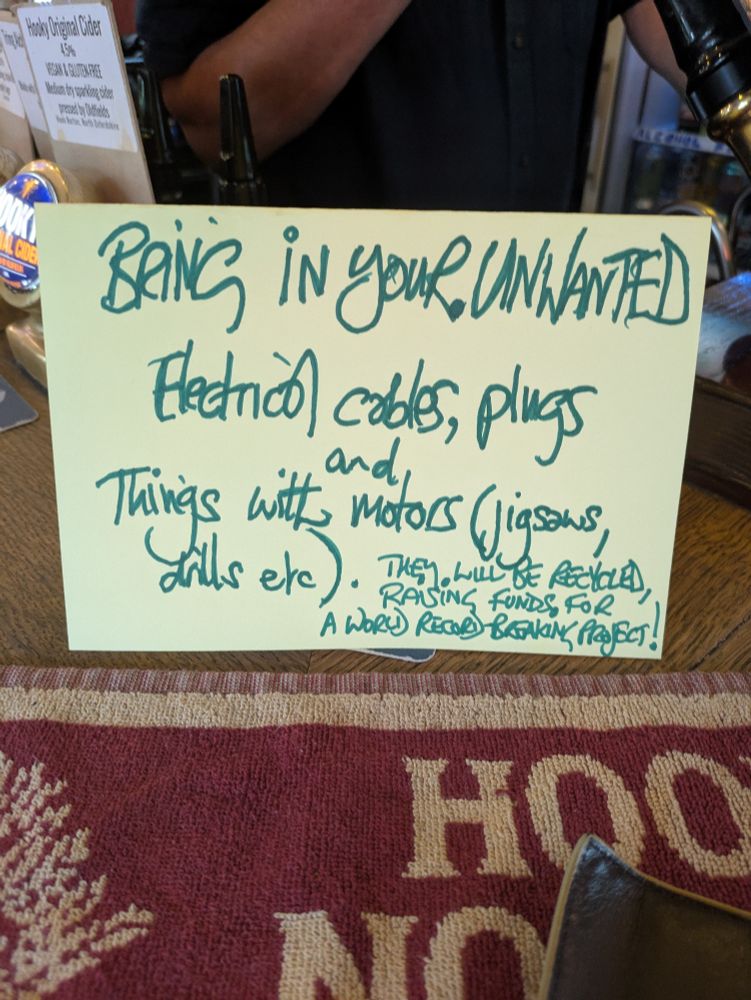 Hooky Original Cider
4.5%
VEGAN & GLUTEN-FREE
Medium dry sparkling cider
pressed by Oldfields
Hook Norton, North Oxfordshire
BRiNG iN YOUR UNWANTED
Electrical cables, plugs
and
Things with motors (jigsaws,
drills etc).
THEY WILL BE RECYCLED,
RAISING FUNDS FOR
A WORLD RECORD-BREAKING PROJECT!
HOO
NO